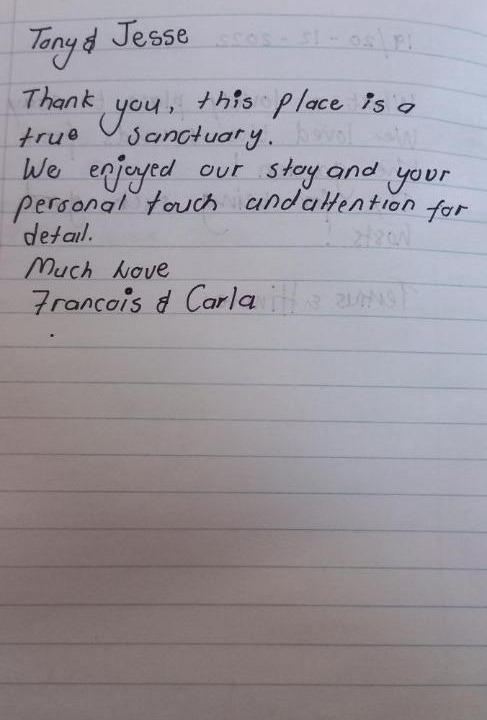 Tony & Jesse
Thank you, this place is a
true sanctuary.
We enjoyed our stay and your
personal touch and attention for
detail.
Much Love
Francois & Carla
19/20-12-2022